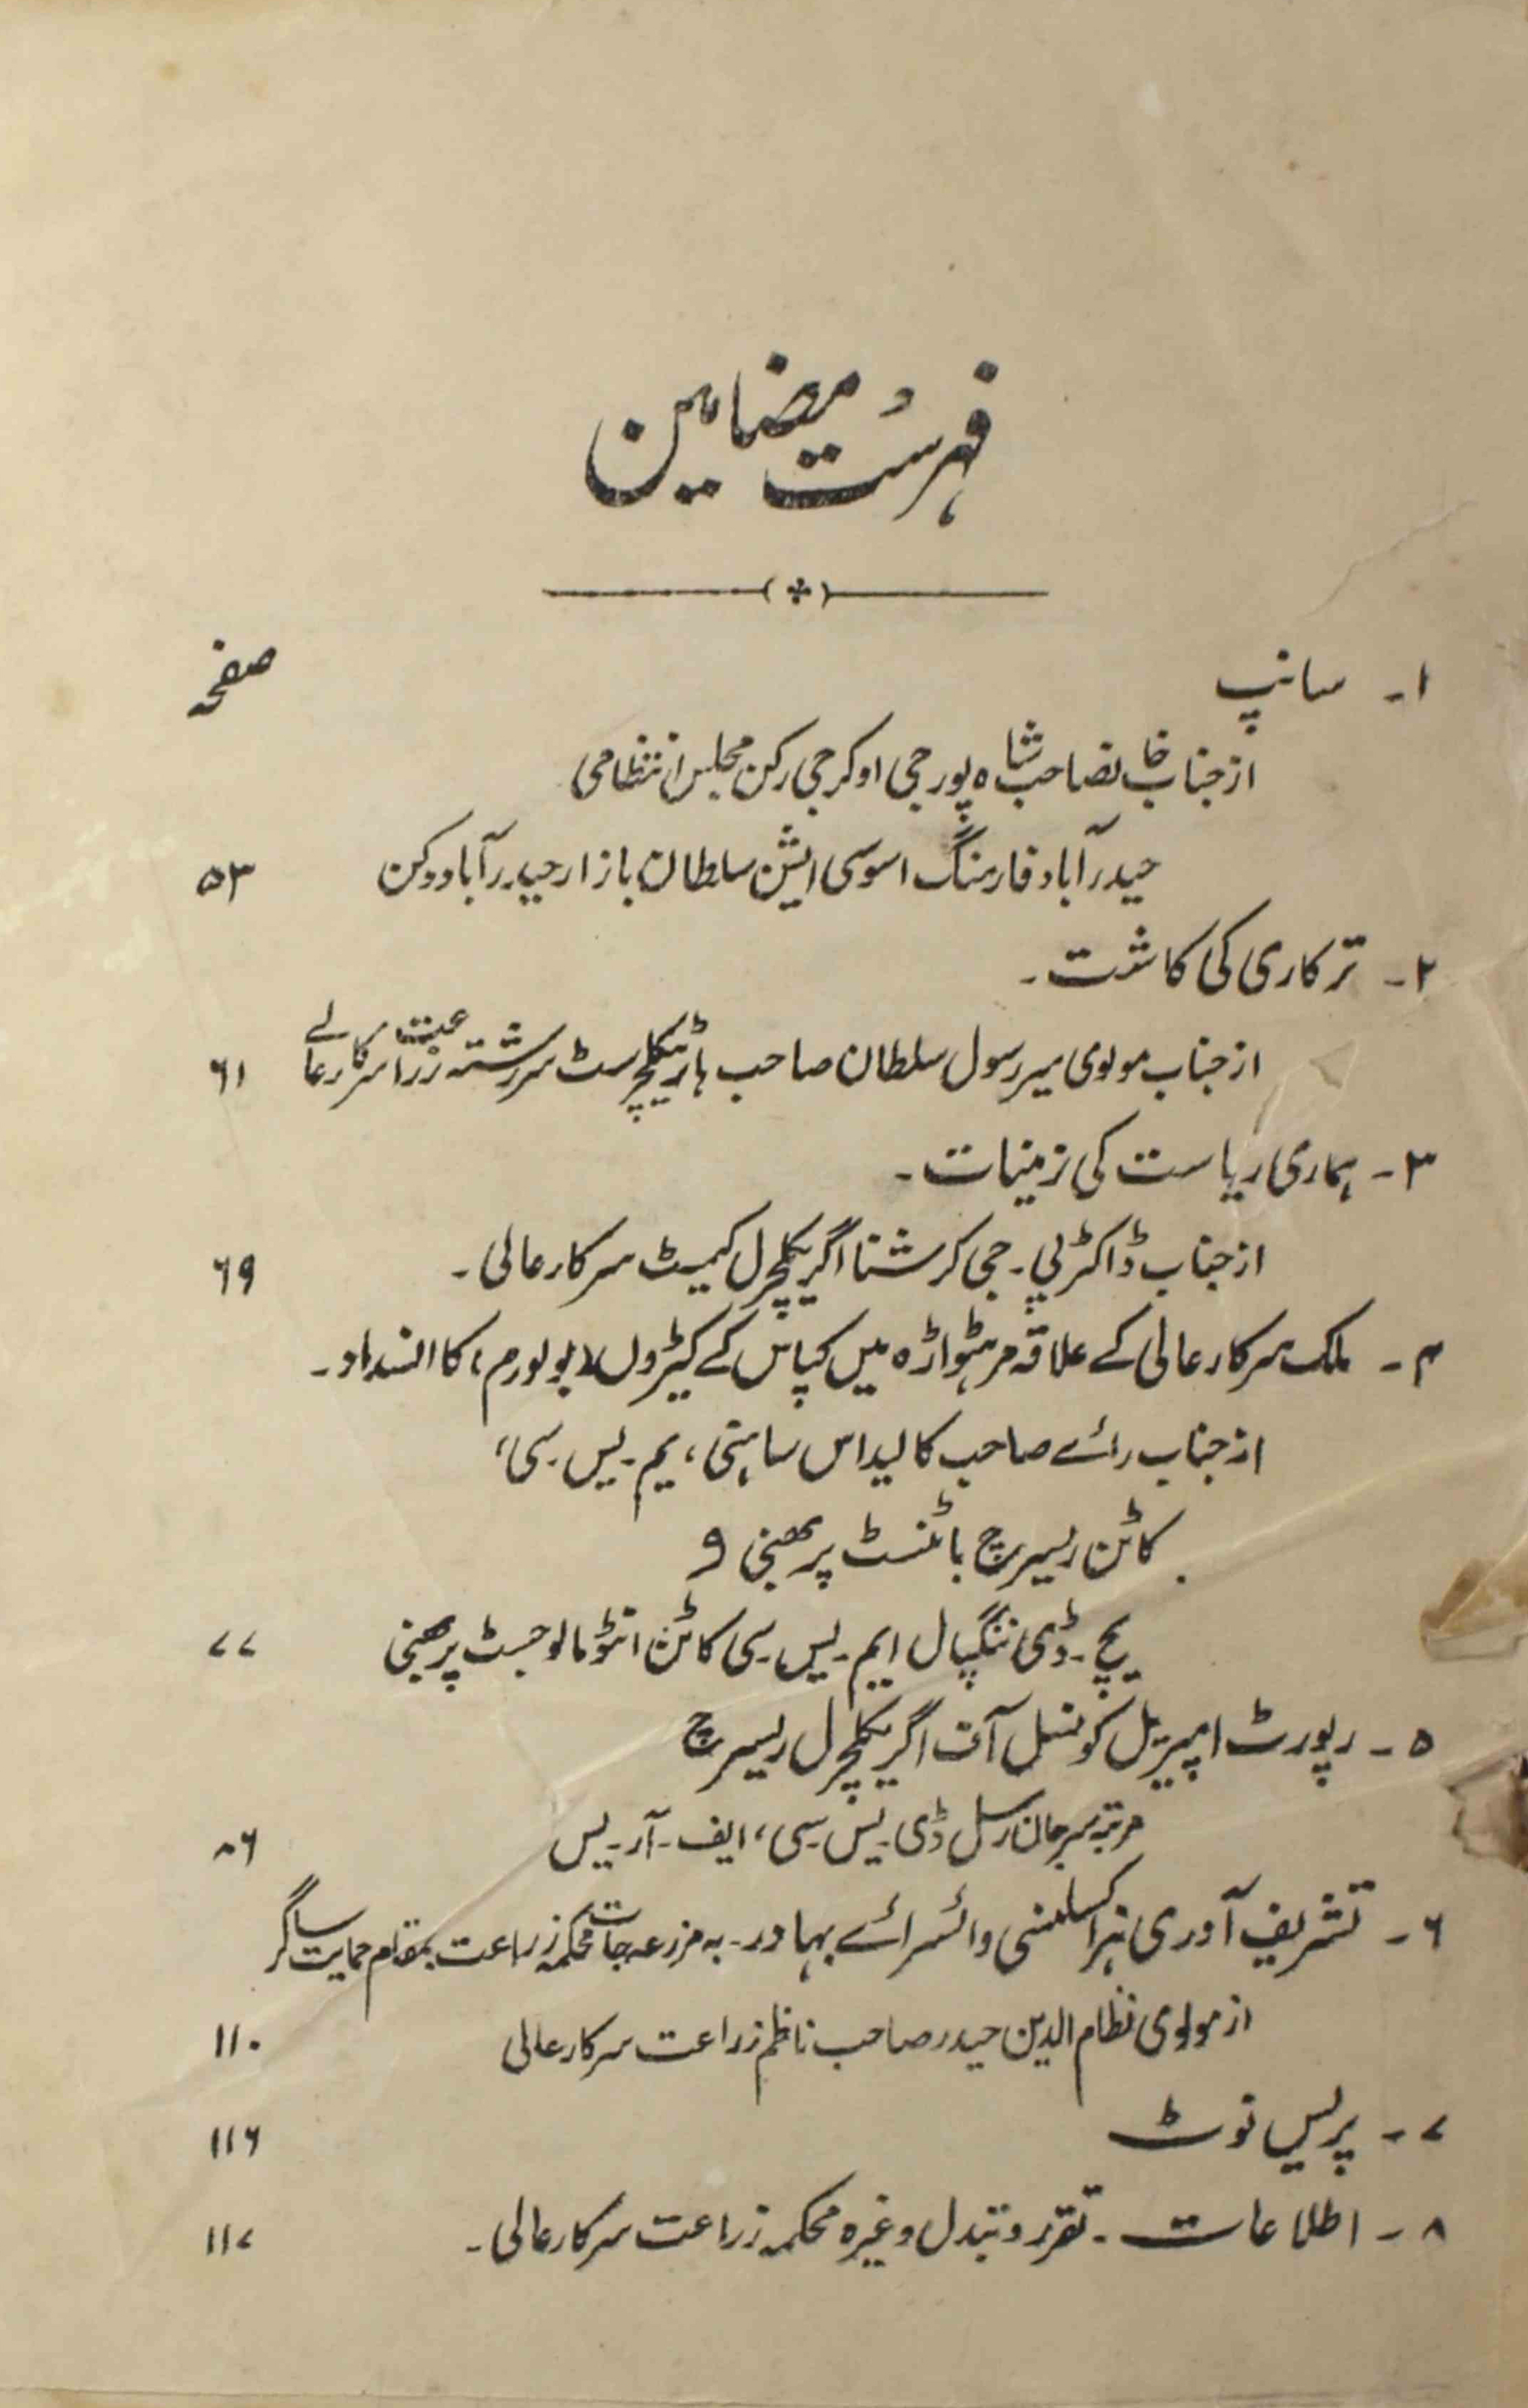 فہرست مضامین
صفحہ
۱۔ سانپ
از جناب خانصاحب شاہ پور جی اوکر جی رکن مجلس انتظامی
حیدرآباد فارمنگ اسوسی ایشن سلطان بازار حیدرآباد دکن ۵۳
۲۔ ترکاری کی کاشت۔
از جناب مولوی میر رسول سلطان صاحب ہارٹیکلچرسٹ سررشتہ زراعت سرکار عالی ۶۱
۳۔ ہماری ریاست کی زمینات۔
از جناب ڈاکٹر پی۔ جی کرشنا اگریکلچرل کیمسٹ سرکار عالی۔ ۶۹
۴۔ ملک سرکار عالی کے علاقہ مرہٹواڑہ میں کپاس کے کیڑوں (بولورم) کا انسداد۔
از جناب رائے صاحب کالیداس ساہنی، یم۔ یس۔ سی،
کاٹن ریسرچ باٹنسٹ پربھنی و
یچ۔ ڈی ننگپال ایم۔ یس۔ سی کاٹن انٹومالوجسٹ پربھنی ۷۷
۵۔ رپورٹ امپیریل کونسل آف اگریکلچرل ریسرچ
مرتبہ سر جان رسل ڈی۔ یس۔ سی، ایف۔ آر۔ یس ۸۶
۶۔ تشریف آوری ہزاکسلنسی وائسرائے بہادر۔ بہ مزرعہ جات محکمہ زراعت بمقام حمایت ساگر
از مولوی نظام الدین حیدر صاحب ناظم زراعت سرکار عالی ۱۱۰
۷۔ پریس نوٹ ۱۱۶
۸۔ اطلاعات۔ تقرر و تبدل وغیرہ محکمہ زراعت سرکار عالی۔ ۱۱۷